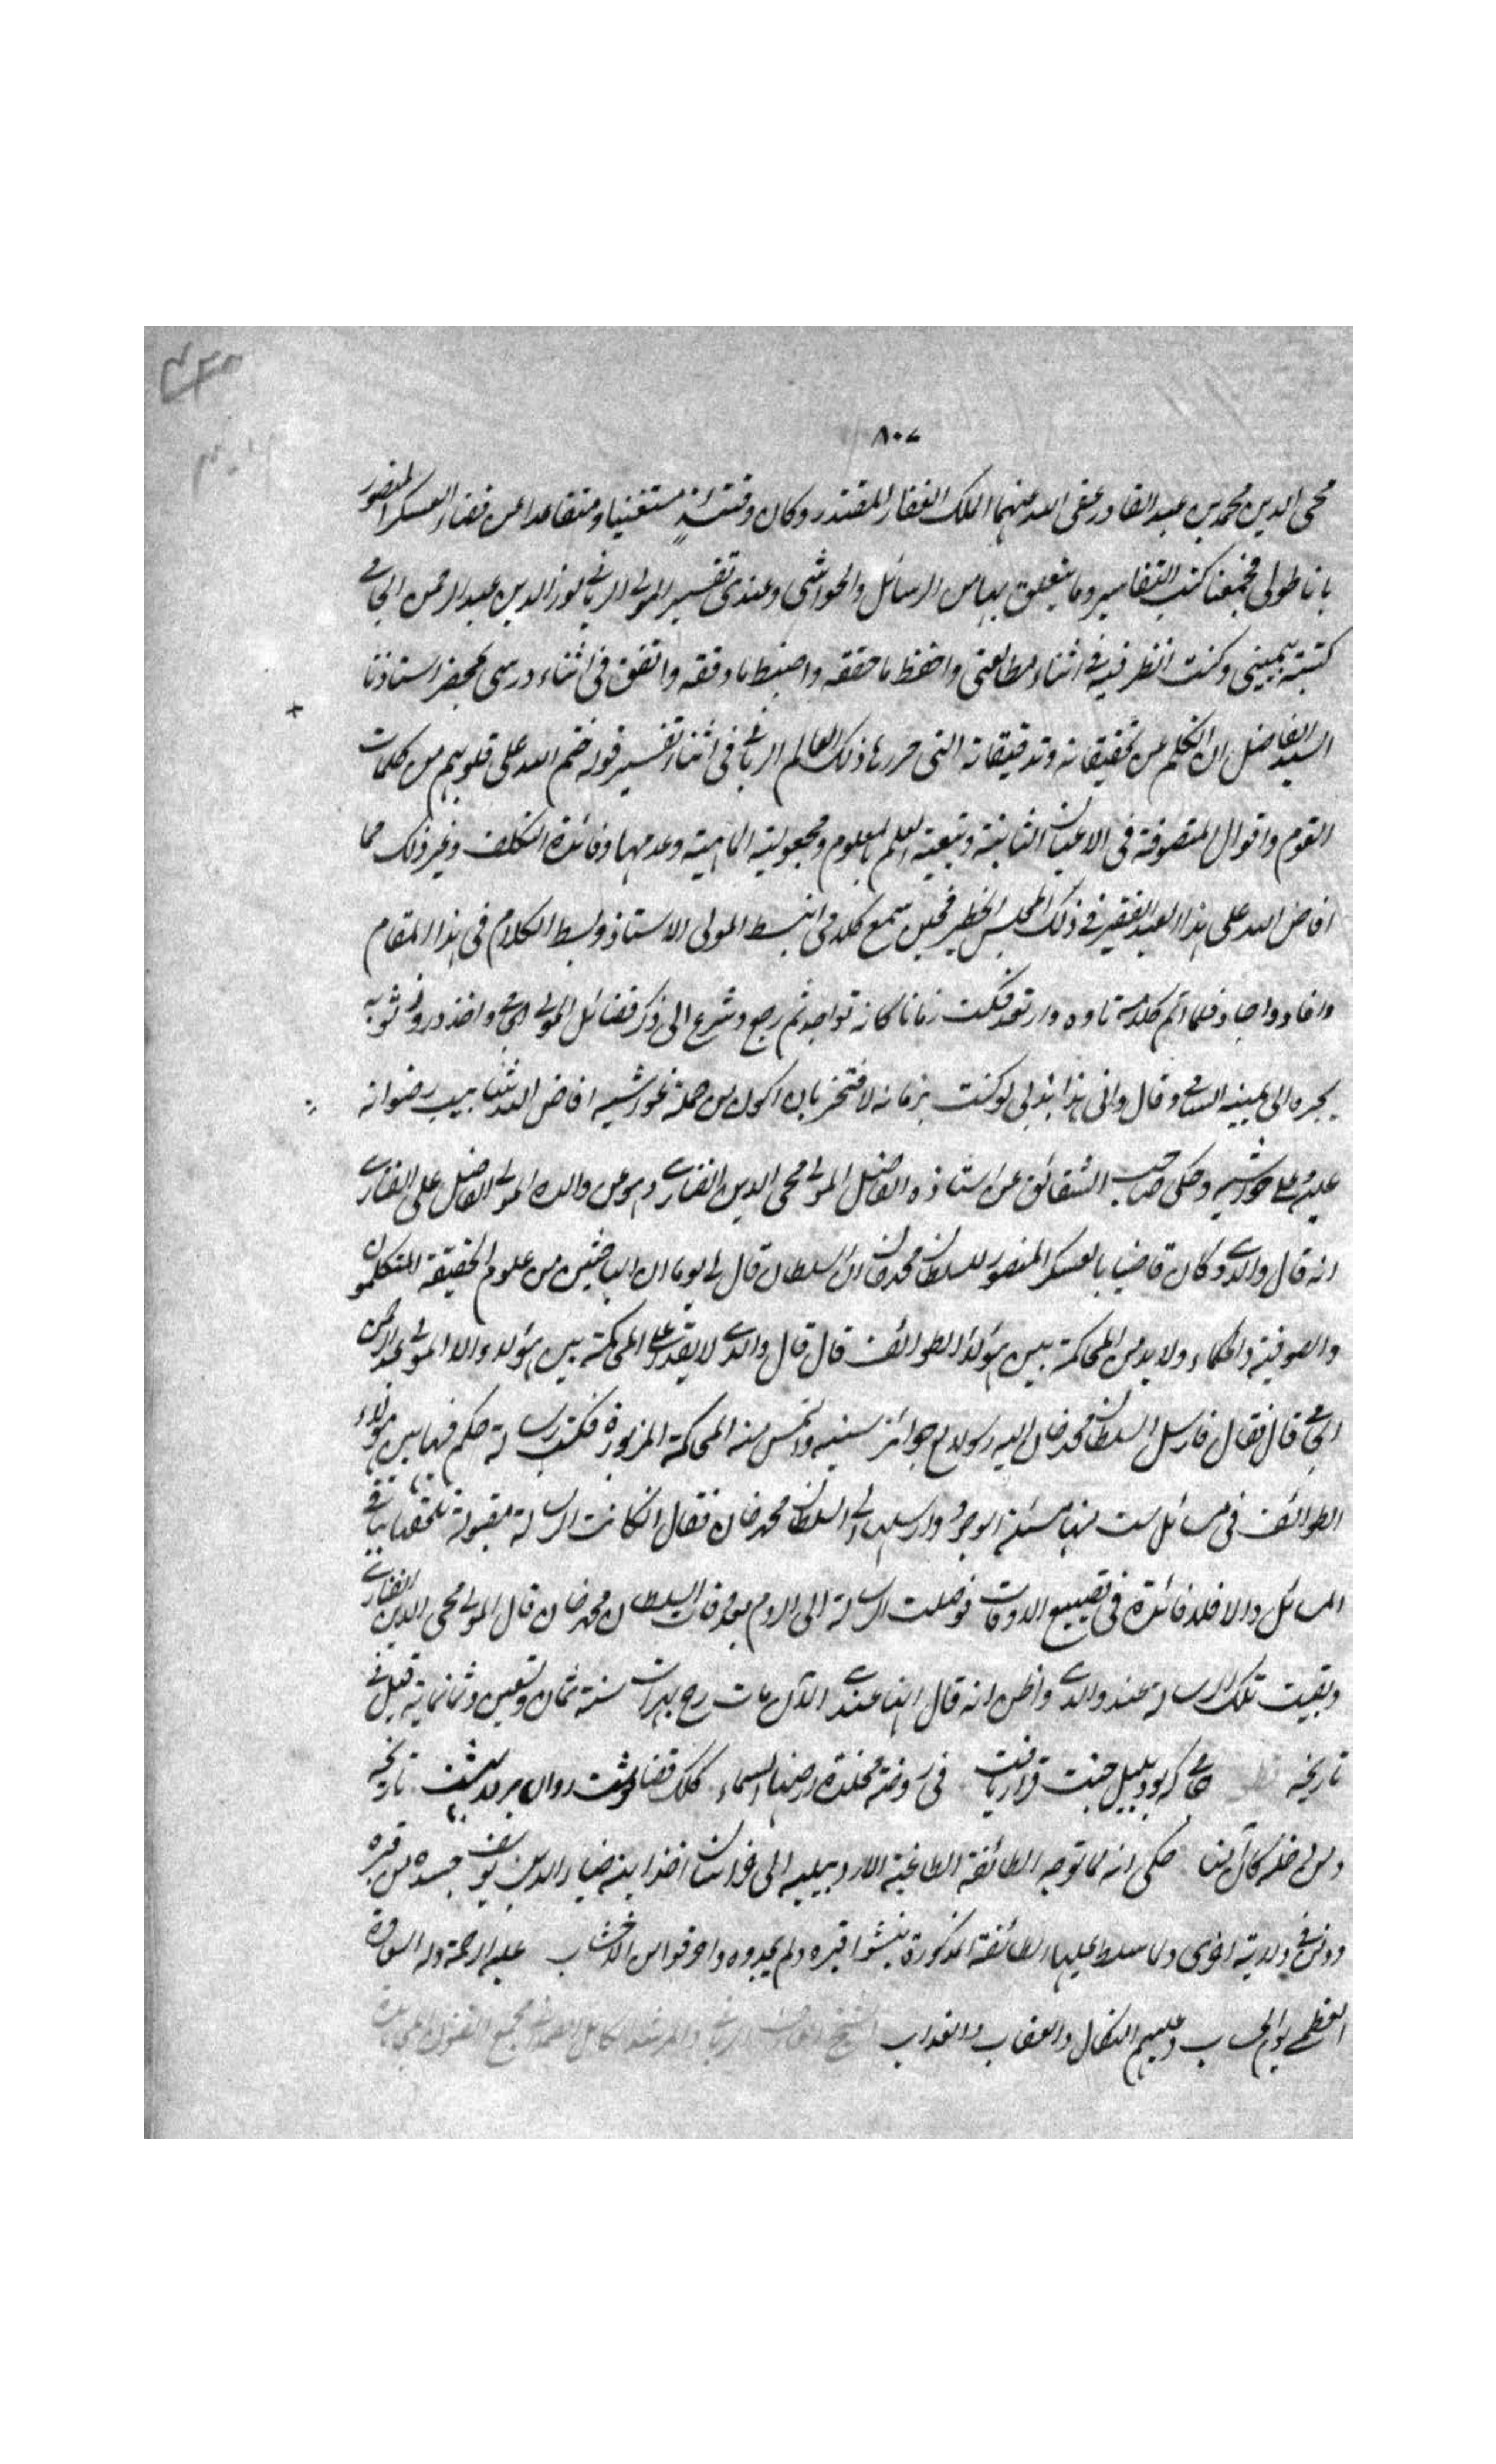 ٨٠٧
محى الدين محمد بن عبد القادر عفى الله عنهما الملك الغفار المقتدر وكان وقتئذ مستغنيا ومتقاعدا عن قضاء العسكر المنصور
باناطولى فجمعنا كتب التفاسير وما يتعلق بها من الرسائل والحواشى وعندى تفسير المولى الربانى نور الدين عبد الرحمن الجامى
كتبته بيمينى وكنت انظر فيه فى اثناء مطالعتى واحفظ ما حققه واضبط ما دققه واتفق فى اثناء درسى بمحضر استاذنا
السيد الفاضل ان اتكلم عن تحقيقاته وتدقيقاته التى حررها ذلك العالم الربانى فى اثناء تفسير قوله ختم الله على قلوبهم من كلمات
القوم واقوال المتصوفة فى الاعيان الثابتة وتبعية العلم بالمعلوم ومجعولية الماهية وعدمها وفائدة التكلف وغير ذلك مما
افاض الله على هذا العبد الفقير فى ذلك المجلس الخطير فحين سمع كلامى انبسط المولى الاستاذ وبسط الكلام فى هذا المقام
وافاد واجاد فلما اتم كلامه تاوه وارتعد فمكث زمانا كانه تواجد ثم رجع وشرع الى ذكر فضائل المولى الجامى واخذ ثوبه
يجره الى عينيه السامى وقال وانى هذا لو كنت بزمانه لافتخر بان اكون من جملة افاض الله شآبيب رضوانه
عليه وعلى وحكى صاحب الشقائق عن استاذه الفاضل المولى محى الدين الفنارى وهو عن والده المولى الفاضل على الفنارى
انه قال والدى وكان قاضيا بالعسكر المنصور للسلطان محمد خان ان السلطان قال لى يوما ان الباحثين من علوم الحقيقة المتكلمون
والصوفية والحكماء ولا بد من المحاكمة بين هؤلاء الطوائف قال قال والدى لا يقدر على المحاكمة بين هؤلاء الا المولى عبد الرحمن
الجامى قال فقال فارسل السلطان محمد خان اليه رسولا مع جوائز سنية والتمس منه المحاكمة المزبورة فكتب رسالة حكم فيها بين هؤلاء
الطوائف فى مسائل ست منها مسئلة الوجود وارسلها الى السلطان محمد خان فقال ان كانت الرسالة مقبولة نلحقها بباقى
المسائل والا فلا فائدة فى تضييع الاوقات فوصلت الرسالة الى الروم بعد وفات السلطان محمد خان قال المولى محى الدين الفنارى
وبقيت تلك الرسالة عند والدى واظن انه قال انها عندى الآن مات رح بهراة سنة ثمان وتسعين وثمانمائة قيل فى
تاريخه جامى كه بود بلبل جنت قرار يافت فى روضة مخلدة ارضها السماء كلك قضا نوشت روان بر در بهشت تاريخه
ومن دخله كان آمنا حكى انه لما توجه الطائفة الطاغية الاردبيلية الى خراسان اخذ ابنه ضياء الدين يوسف جسده من قبره
ودفن فى ولاية اخرى ولما سلط عليها الطائفة المذكورة نبشوا قبره ولم يجدوه واحرقوا من الاخشاب عليه الرحمة وله
العظمى يوم الحساب وعليهم النكال والعقاب والعذاب